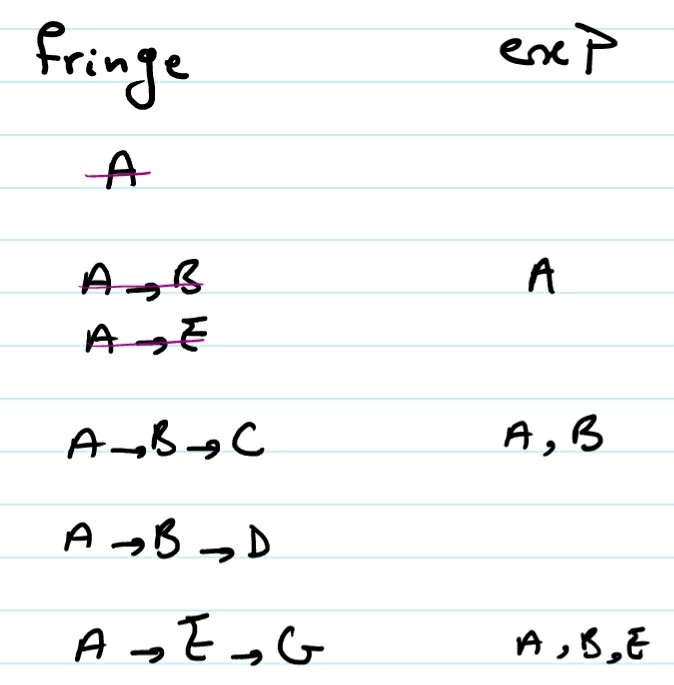 fringe exp
A
A → B A
A → E
A → B → C A, B
A → B → D
A → E → G A, B, E